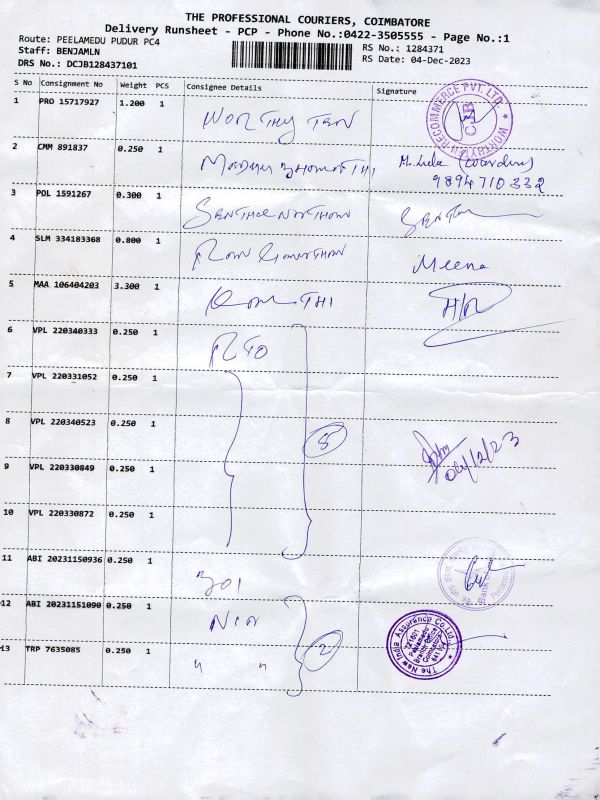 THE PROFESSIONAL COURIERS, COIMBATORE
Delivery Runsheet - PCP - Phone No.:0422-3505555 - Page No.:1
Route: PEELAMEDU PUDUR PC4
RS No.: 1284371
Staff: BENJAMLN
RS Date: 04-Dec-2023
DRS No.: DCJB128437101
S No Consignment No Weight PCS Consignee Details Signature
1 PRO 15717927 1.200 1
WORTHYIFI RECOMMERCE PVT. LTD.
CJB
2 CMM 891837 0.250 1 M. Lila (Warden)
9894710332
3 POL 1591267 0.300 1
4 SLM 334183368 0.800 1 Meena
5 MAA 106404203 3.300 1
6 VPL 220340333 0.250 1 RTO
7 VPL 220331052 0.250 1
8 VPL 220340523 0.250 1 5
04/12/23
9 VPL 220330849 0.250 1
10 VPL 220330872 0.250 1
11 ABI 20231150936 0.250 1
12 ABI 20231151090 0.250 1
13 TRP 7635085 0.250 1 " " 2
The New India Assurance Co. Ltd.
Branch Office